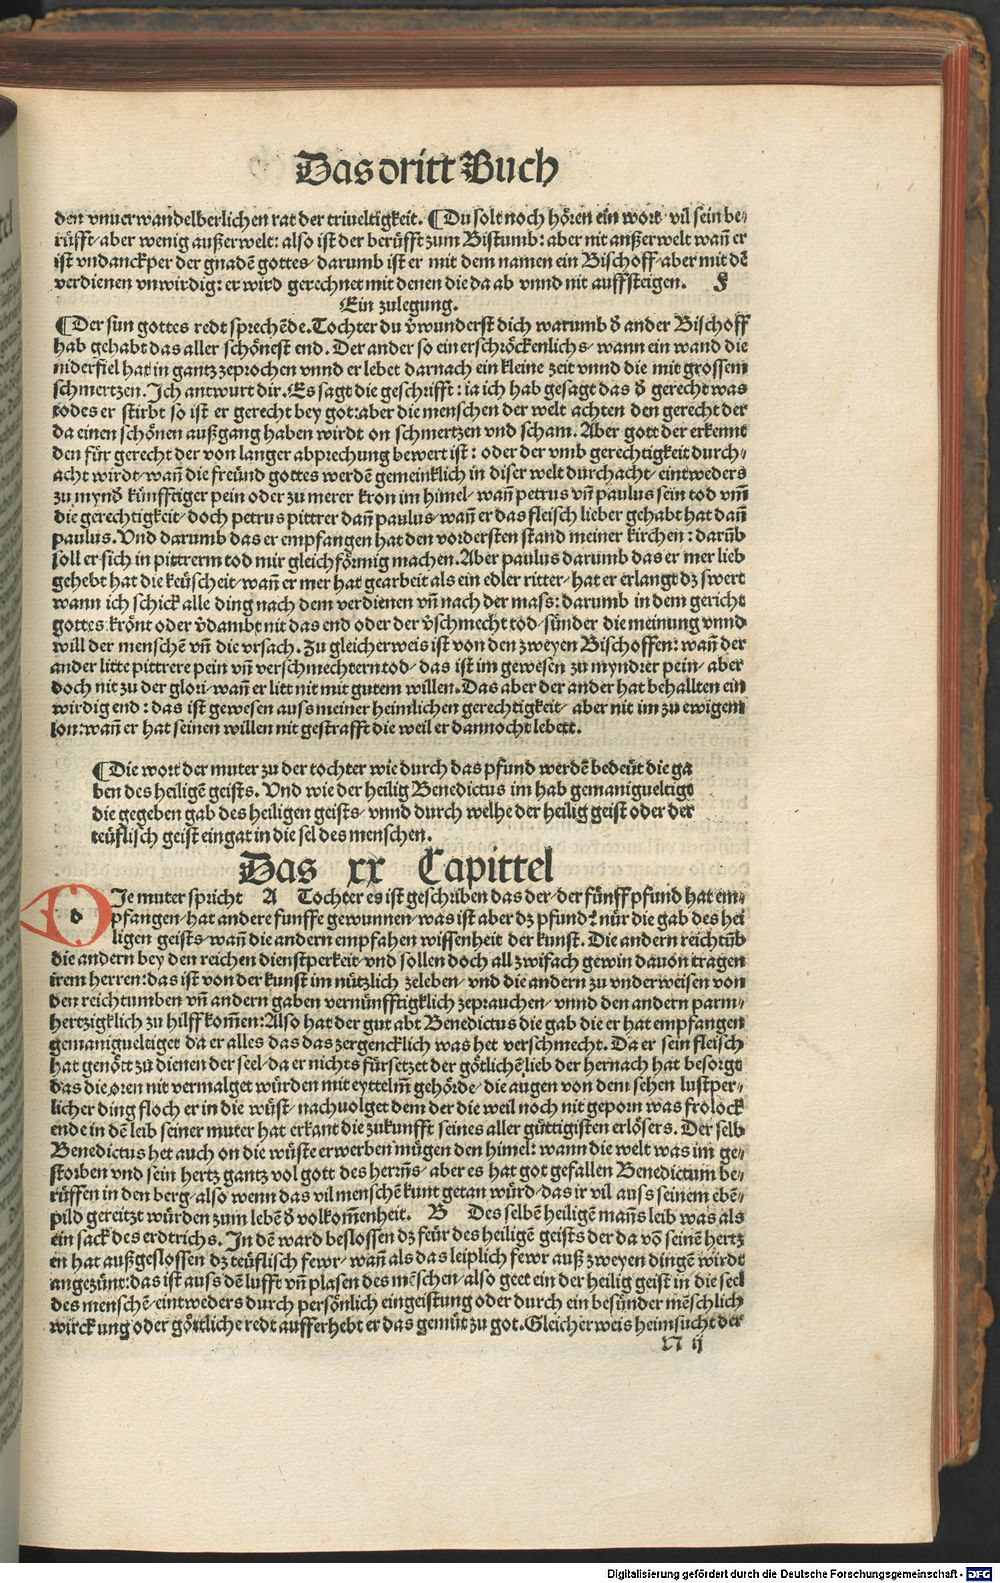 Das dritt Buch
den vnuerwandelberlichen rat der triueltigkeit. ¶Du solt noch hören ein wort vil sein be⸗
rüfft/ aber wenig außerwelt: also ist der berüfft zum Bistumb: aber nit außerwelt wañ er
ist vndanckper der gnadē gottes/ darumb ist er mit dem namen ein Bischoff/ aber mit dē
verdienen vnwirdig: er wird gerechnet mit denen die da ab vnnd nit auffsteigen.
Ein zulegung.
¶Der sun gottes redt sprechēde. Tochter du v̄wunderst dich warumb d̄ ander Bischoff
hab gehabt das aller schönest end. Der ander so ein erschröckenlichs/ wann ein wand die
niderfiel hat in gantz zeprochen vnnd er lebet darnach ein kleine zeit vnnd die mit grossem
schmertzen. Ich antwurt dir. Es sagt die geschrifft: ia ich hab gesagt das d̄ gerecht was
todes er stirbt so ist er gerecht bey got: aber die menschen der welt achten den gerecht der
da einen schönen außgang haben wirdt on schmertzen vnd scham. Aber gott der erkennt
den für gerecht der von langer abprechung bewert ist: oder der vmb gerechtigkeit durch⸗
acht wirdt/ wañ die freünd gottes werdē gemeinklich in diser welt durchacht/ eintweders
zu mynd̄ künfftiger pein oder zu merer kron im himel/ wañ petrus vñ paulus sein tod vm̄
die gerechtigkeit/ doch petrus pittrer dañ paulus/ wañ er das fleisch lieber gehabt hat dañ
paulus. Vnd darumb das er empfangen hat den vordersten stand meiner kirchen: darūb
soll er sich in pittrerm tod mir gleichförmig machen. Aber paulus darumb das er mer lieb
gehebt hat die keüscheit/ wañ er mer hat gearbeit als ein edler ritter/ hat er erlangt dz swert
wann ich schick alle ding nach dem verdienen vñ nach der mass: darumb in dem gericht
gottes krönt oder v̄dambt nit das end oder der v̄schmecht tod/ sünder die meinung vnnd
will der menschē vñ die vrsach. Zu gleicherweis ist von den zweyen Bischoffen: wañ der
ander litte pittrere pein vñ verschmechtern tod/ das ist im gewesen zu myndrer pein/ aber
doch nit zu der glori/ wañ er litt nit mit gutem willen. Das aber der ander hat behallten ein
wirdig end: das ist gewesen auss meiner heimlichen gerechtigkeit/ aber nit im zu ewigem
lon: wañ er hat seinen willen nit gestrafft die weil er dannocht lebett.
¶Die wort der muter zu der tochter wie durch das pfund werdē bedeüt die ga
ben des heiligē geists. Vnd wie der heilig Benedictus im hab gemanigueltigt
die gegeben gab des heiligen geists/ vnnd durch welhe der heilig geist oder der
teüflisch geist eingat in die sel des menschen.
Das xx Capittel
d Je muter spricht A Tochter es ist geschriben das der/ der fünff pfund hat em⸗
pfangen/ hat andere funffe gewunnen/ was ist aber dz pfund? nür die gab des hei
ligen geists/ wañ die andern empfahen wissenheit der kunst. Die andern reichtūb
die andern bey den reichen dienstperkeit/ vnd sollen doch all zwifach gewin dauon tragen
irem herren: das ist von der kunst im nützlich zeleben/ vnd die andern zu vnderweisen von
den reichtumben vñ andern gaben vernünfftigklich zeprauchen/ vnnd den andern parm⸗
hertzigklich zu hilff kom̄en: Also hat der gut abt Benedictus die gab die er hat empfangen
gemanigueltiget da er alles das das zergencklich was het verschmecht. Da er sein fleisch
hat genött zu dienen der seel/ da er nichts fürsetzet der götlichē lieb der hernach hat besorgt
das die oren nit vermalget würden mit eyttelm̄ gehörde/ die augen von dem sehen lustper⸗
licher ding floch er in die wüst/ nachuolget dem der die weil noch nit geporn was frolock
ende in dē leib seiner muter hat erkant die zukunfft seines aller güttigisten erlösers. Der selb
Benedictus het auch on die wüste erwerben mügen den himel: wann die welt was im ge⸗
storben vnd sein hertz gantz vol gott des herrn̄s/ aber es hat got gefallen Benedictum be⸗
rüffen in den berg/ also wenn das vil menschē kunt getan würd/ das ir vil auss seinem ebē⸗
pild gereitzt würden zum lebē d̄ volkom̄enheit. B Des selbē heiligē mañs leib was als
ein sack des erdtrichs. In dē ward beslossen dz feür des heiligē geists der da vō seinē hertz
en hat außgeslossen dz teüflisch fewr/ wañ als das leiplich fewr auß zweyen dingē wirdt
angezünt: das ist auss dē lufft vñ plasen des mēschen/ also geet ein der heilig geist in die seel
des menschē/ eintweders durch persönlich eingeistung oder durch ein besünder mēschlich
wirckung oder göttliche redt aufferhebt er das gemüt zu got. Gleicherweis heimsucht der
N ij
Digitalisierung gefördert durch die Deutsche Forschungsgemeinschaft - DFG